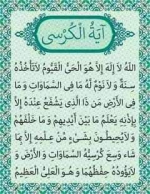 آيَةُ الْكُرْسِى
اَللّٰهُ لَا إِلٰهَ إِلَّا هُوَ الْحَيُّ الْقَيُّومُ لَا تَأْخُذُهُ
سِنَةٌ وَلَا نَوْمٌ لَهُ مَا فِي السَّمَاوَاتِ وَمَا
فِي الْأَرْضِ مَنْ ذَا الَّذِي يَشْفَعُ عِنْدَهُ إِلَّا
بِإِذْنِهِ يَعْلَمُ مَا بَيْنَ أَيْدِيهِمْ وَمَا خَلْفَهُمْ
وَلَا يُحِيطُونَ بِشَيْءٍ مِنْ عِلْمِهِ إِلَّا بِمَا
شَاءَ وَسِعَ كُرْسِيُّهُ السَّمَاوَاتِ وَالْأَرْضَ وَ
لَا يَؤُدُهُ حِفْظُهُمَا وَهُوَ الْعَلِيُّ الْعَظِيمُ